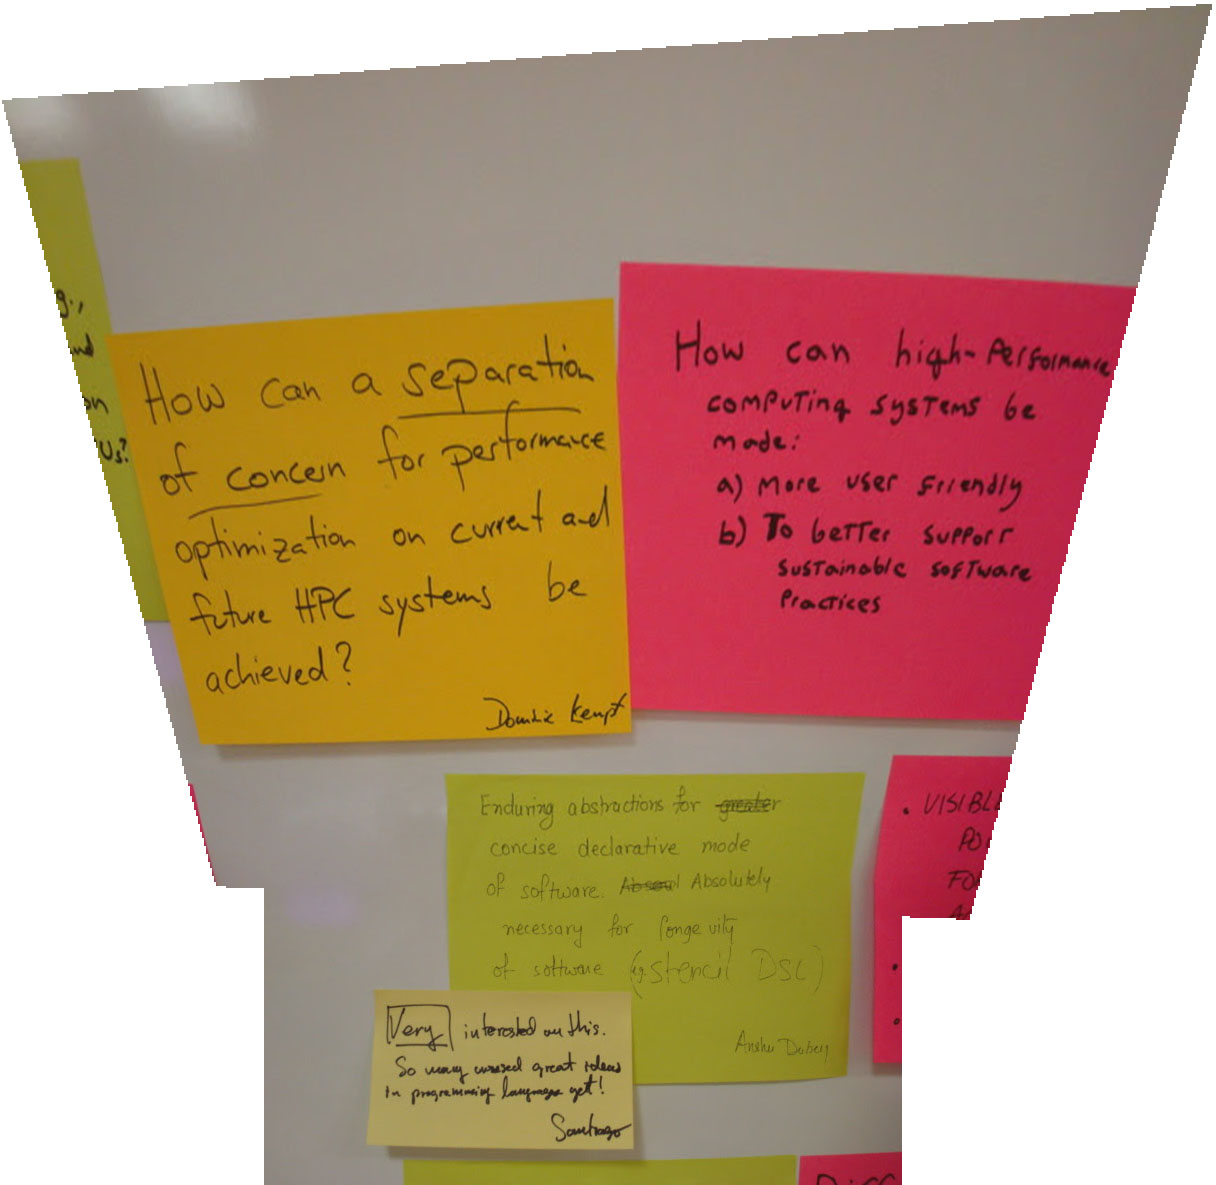 g.,
and
on
Us?
How can a separation
of concern for performance
optimization on current and
future HPC systems be
achieved?
Dominic Kempf
How can high-Performance
computing systems be
made:
a) More user friendly
b) To better support
sustainable software
Practices
Enduring abstractions for greater
concise declarative mode
of software. Absolutely
necessary for longevity
of software (eg stencil DSL)
Anshu Dubey
• VISIBL
PO
FO
Very interested on this.
So many unused great ideas
in programming languages yet!
Santiago
DIFF